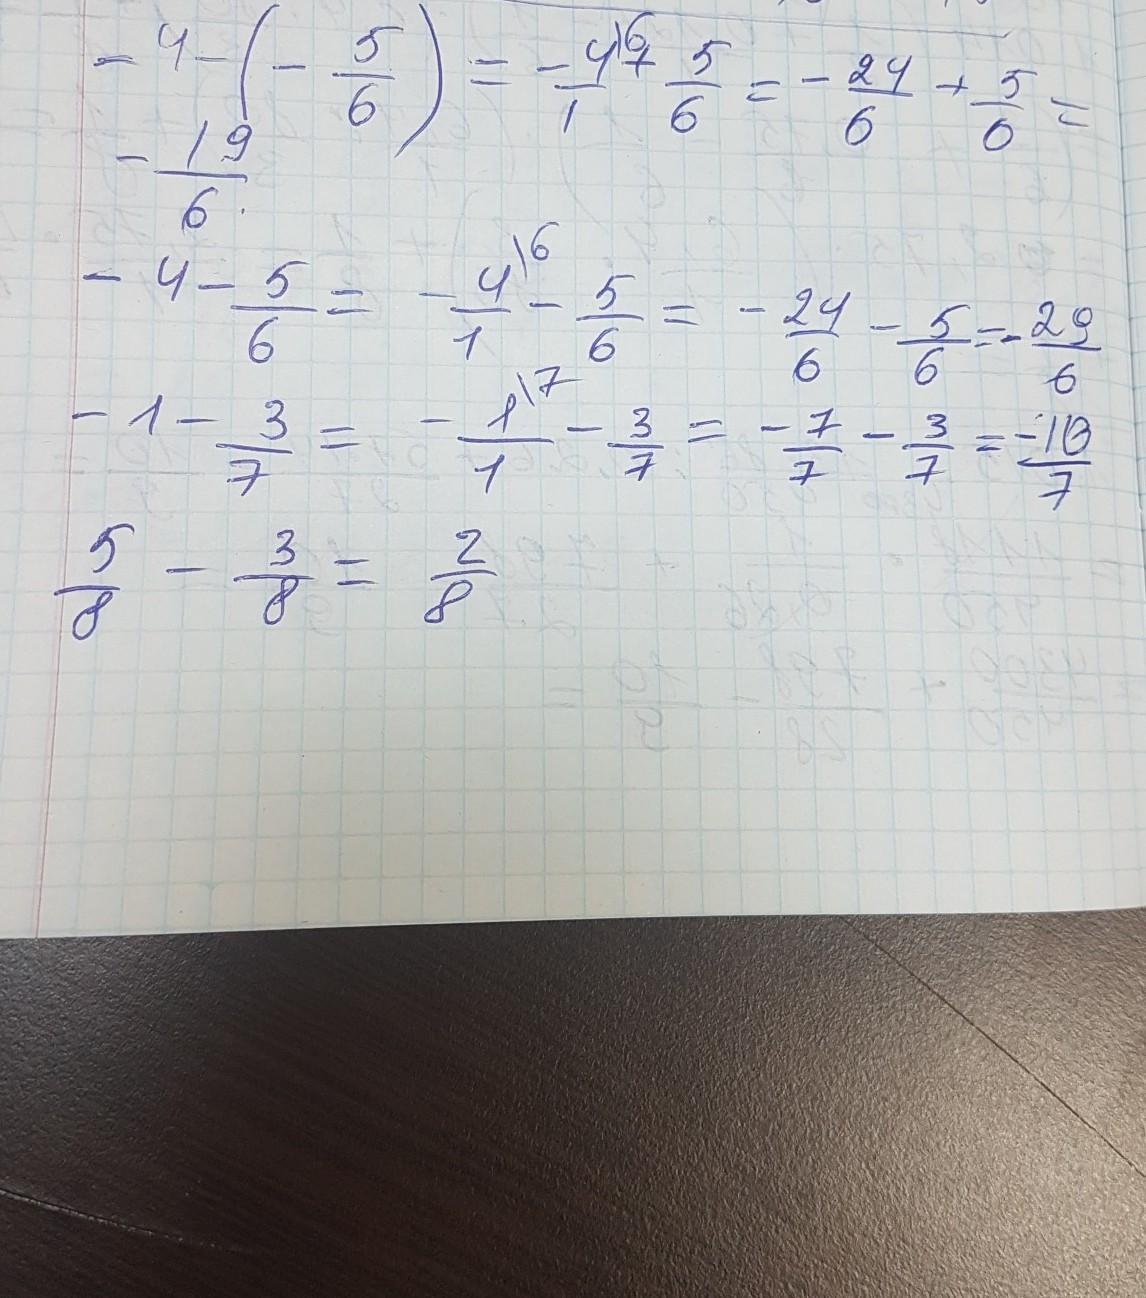 -4-(-5/6) = -4/1\6 + 5/6 = -24/6 + 5/6 =
-19/6.
-4 - 5/6 = -4/1\6 - 5/6 = -24/6 - 5/6 = -29/6
-1 - 3/7 = -1/1\7 - 3/7 = -7/7 - 3/7 = -10/7
5/8 - 3/8 = 2/8